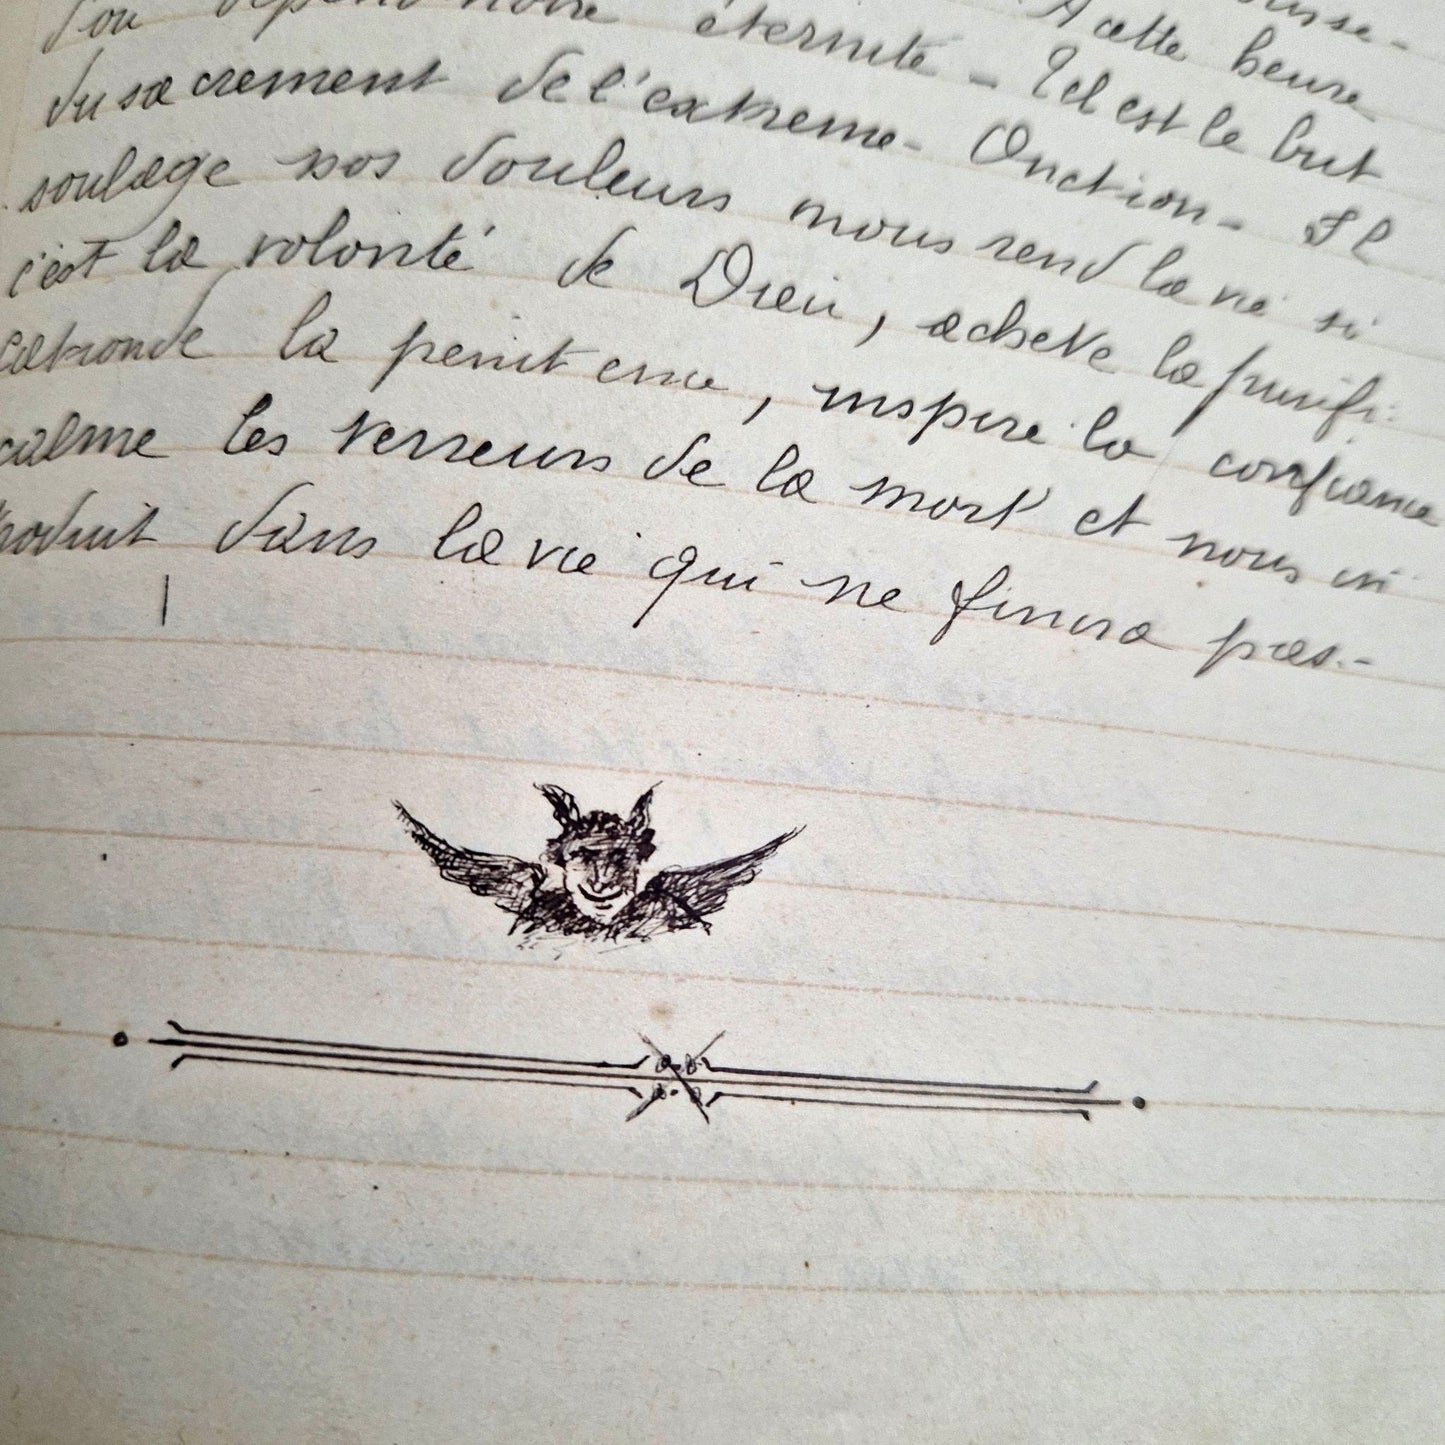 A cette heure
d'où dépend notre éternité - Tel est le but
du sacrement de l'extreme-Onction - Il
soulage nos douleurs nous rend la vie si
c'est la volonté de Dieu, acheve la purifi-
la penitence, inspire la confiance
calme les terreurs de la mort et nous in
troduit dans la vie qui ne finira pas.-